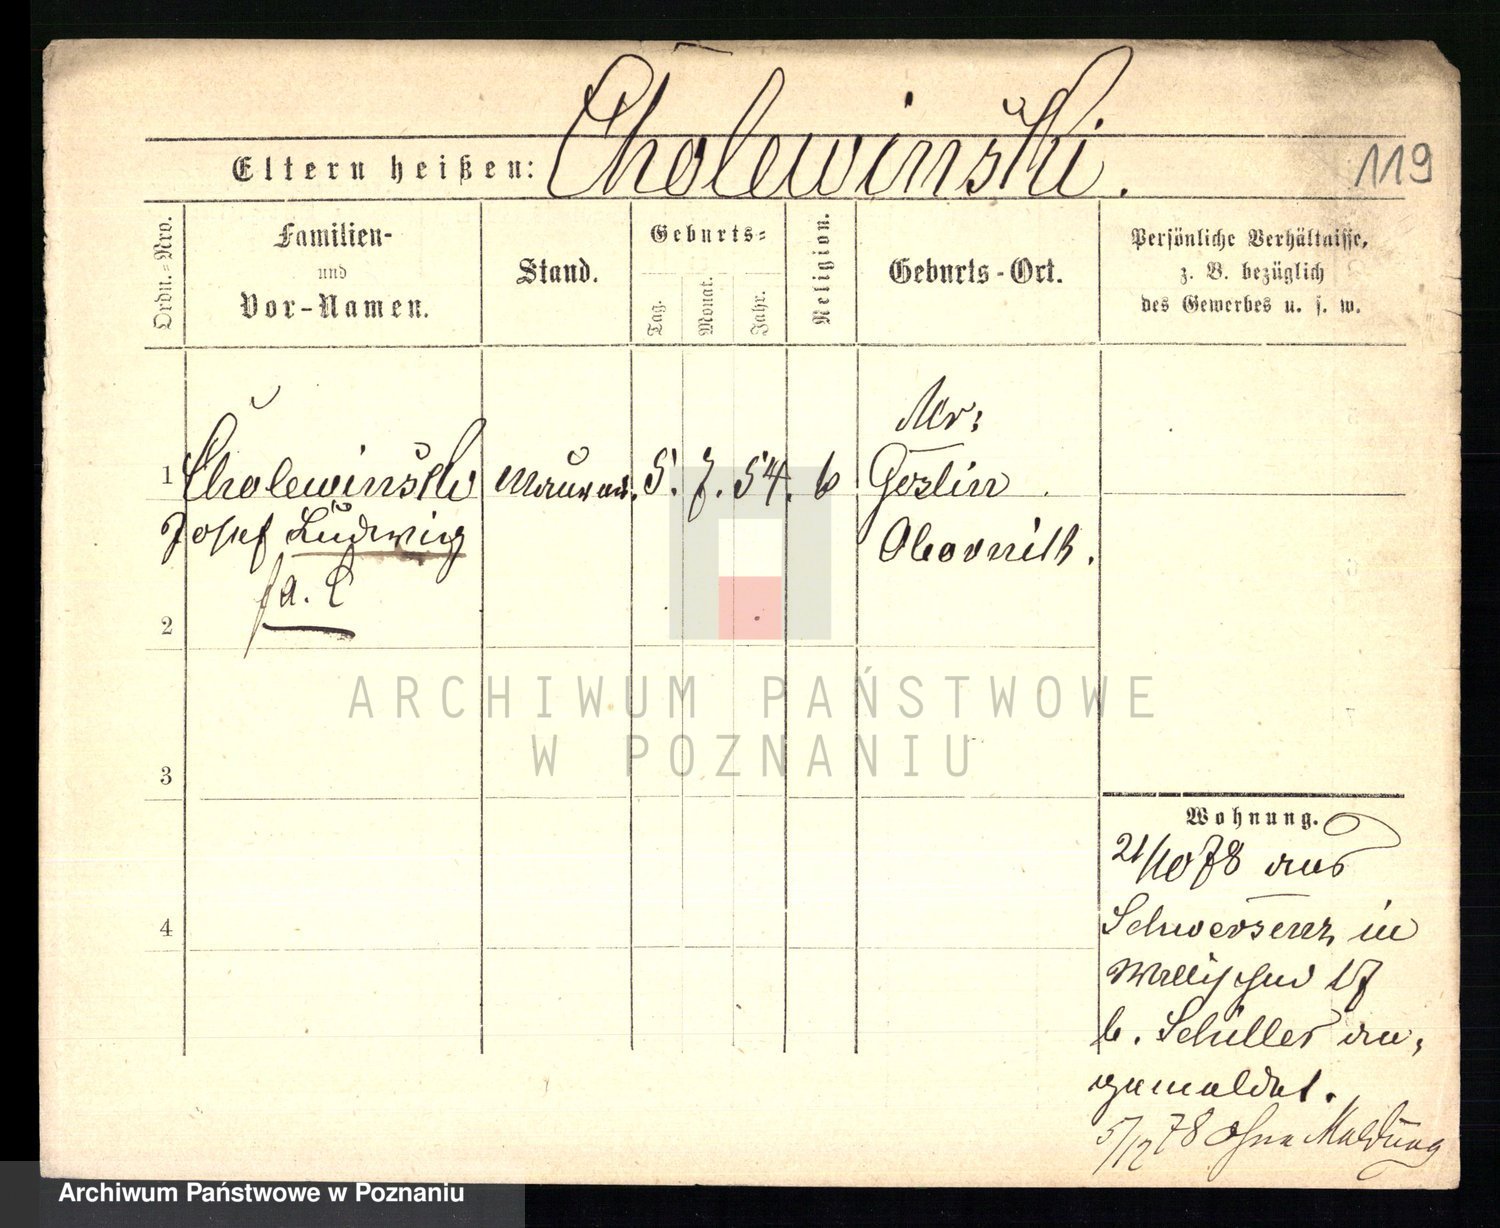 Cholewinski.
Eltern heißen:
119
Ordn.-Nro.
Familien-
und
Vor-Namen.
Stand.
Geburts-
Tag.
Monat.
Jahr.
Religion.
Geburts-Ort.
Persönliche Verhältnisse,
z. B. bezüglich
des Gewerbes u. s. w.
Mur:
1 Cholewinski Maurer. 5. 7. 54. k Goslin
Josef Ludwig Obornik.
fa. L
2
ARCHIWUM PAŃSTWOWE
W POZNANIU
3
Wohnung.
21/10 78 aus
4
Schwersenz in
Wallischei 17
b. Schüller an-
gemeldet.
5/12 78 ohne Meldung
Archiwum Państwowe w Poznaniu